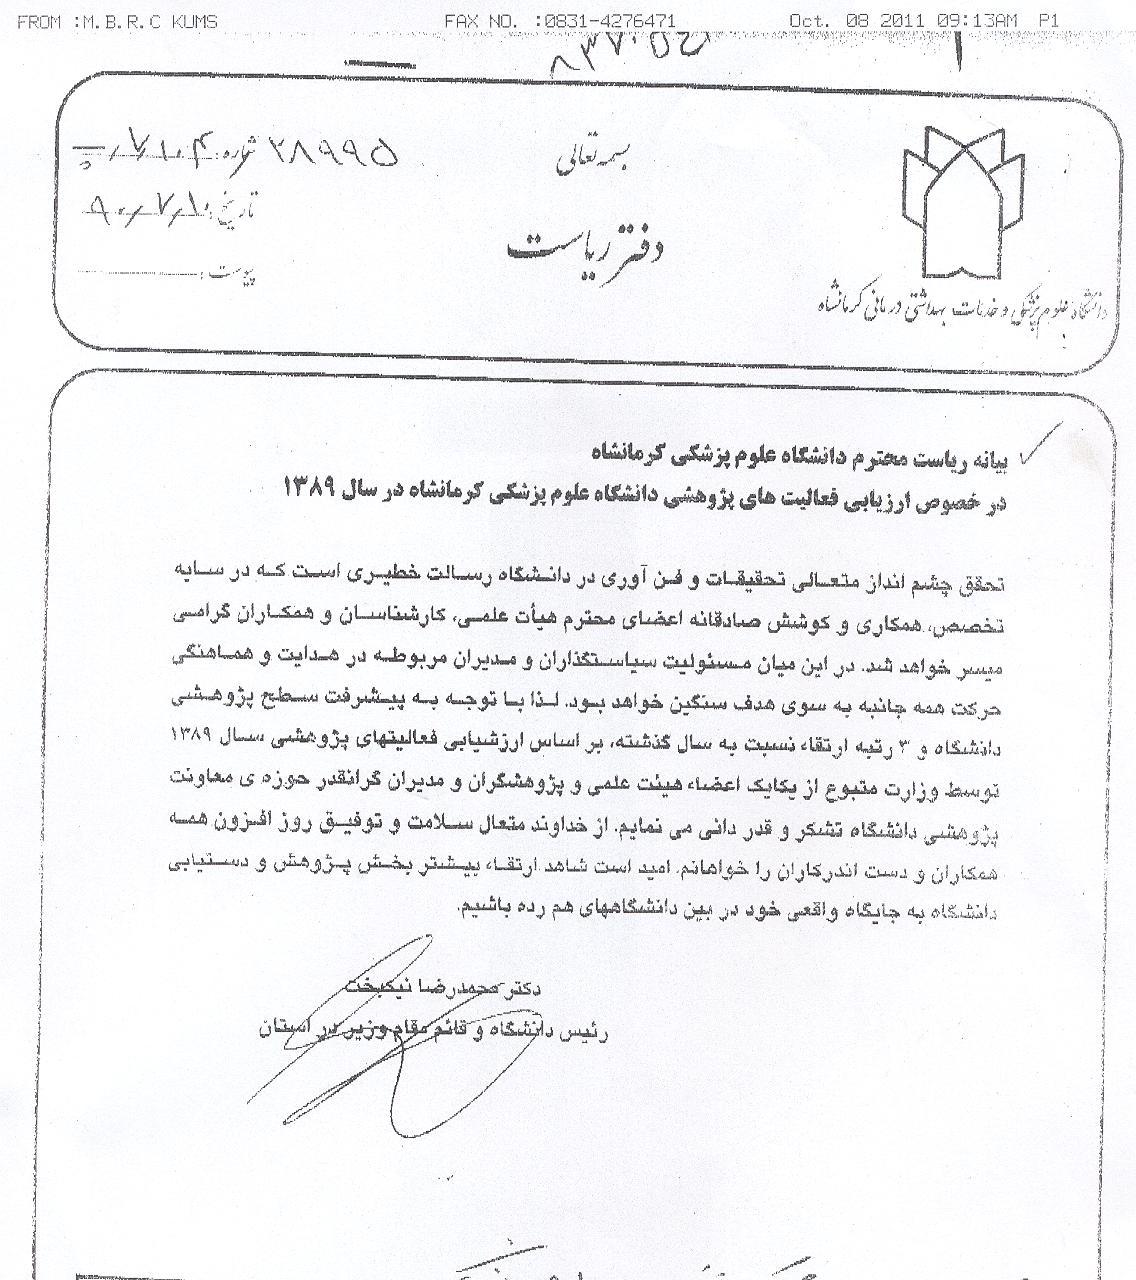 FROM :M.B.R.C KUMS FAX NO. :0831-4276471 Oct. 08 2011 09:13AM P1
بسمه تعالی
شماره: ۲۸۹۹۵
تاریخ: ۹۰٫۷٫۱۰
دفتر ریاست
پیوست:
دانشگاه علوم پزشکی و خدمات بهداشتی درمانی کرمانشاه
بیانه ریاست محترم دانشگاه علوم پزشکی کرمانشاه
در خصوص ارزیابی فعالیت های پژوهشی دانشگاه علوم پزشکی کرمانشاه در سال ۱۳۸۹
تحقق چشم انداز متعالی تحقیقات و فن آوری در دانشگاه رسالت خطیری است که در سایه
تخصص، همکاری و کوشش صادقانه اعضای محترم هیأت علمی، کارشناسان و همکاران گرامی
میسر خواهد شد. در این میان مسئولیت سیاستگذاران و مدیران مربوطه در هدایت و هماهنگی
حرکت همه جانبه به سوی هدف سنگین خواهد بود. لذا با توجه به پیشرفت سطح پژوهشی
دانشگاه و ۳ رتبه ارتقاء نسبت به سال گذشته، بر اساس ارزشیابی فعالیتهای پژوهشی سال ۱۳۸۹
توسط وزارت متبوع از یکایک اعضاء هیئت علمی و پژوهشگران و مدیران گرانقدر حوزه ی معاونت
پژوهشی دانشگاه تشکر و قدر دانی می نمایم. از خداوند متعال سلامت و توفیق روز افزون همه
همکاران و دست اندرکاران را خواهانم. امید است شاهد ارتقاء بیشتر بخش پژوهش و دستیابی
دانشگاه به جایگاه واقعی خود در بین دانشگاههای هم رده باشیم.
دکتر محمدرضا نیکبخت
رئیس دانشگاه و قائم مقام وزیر در استان